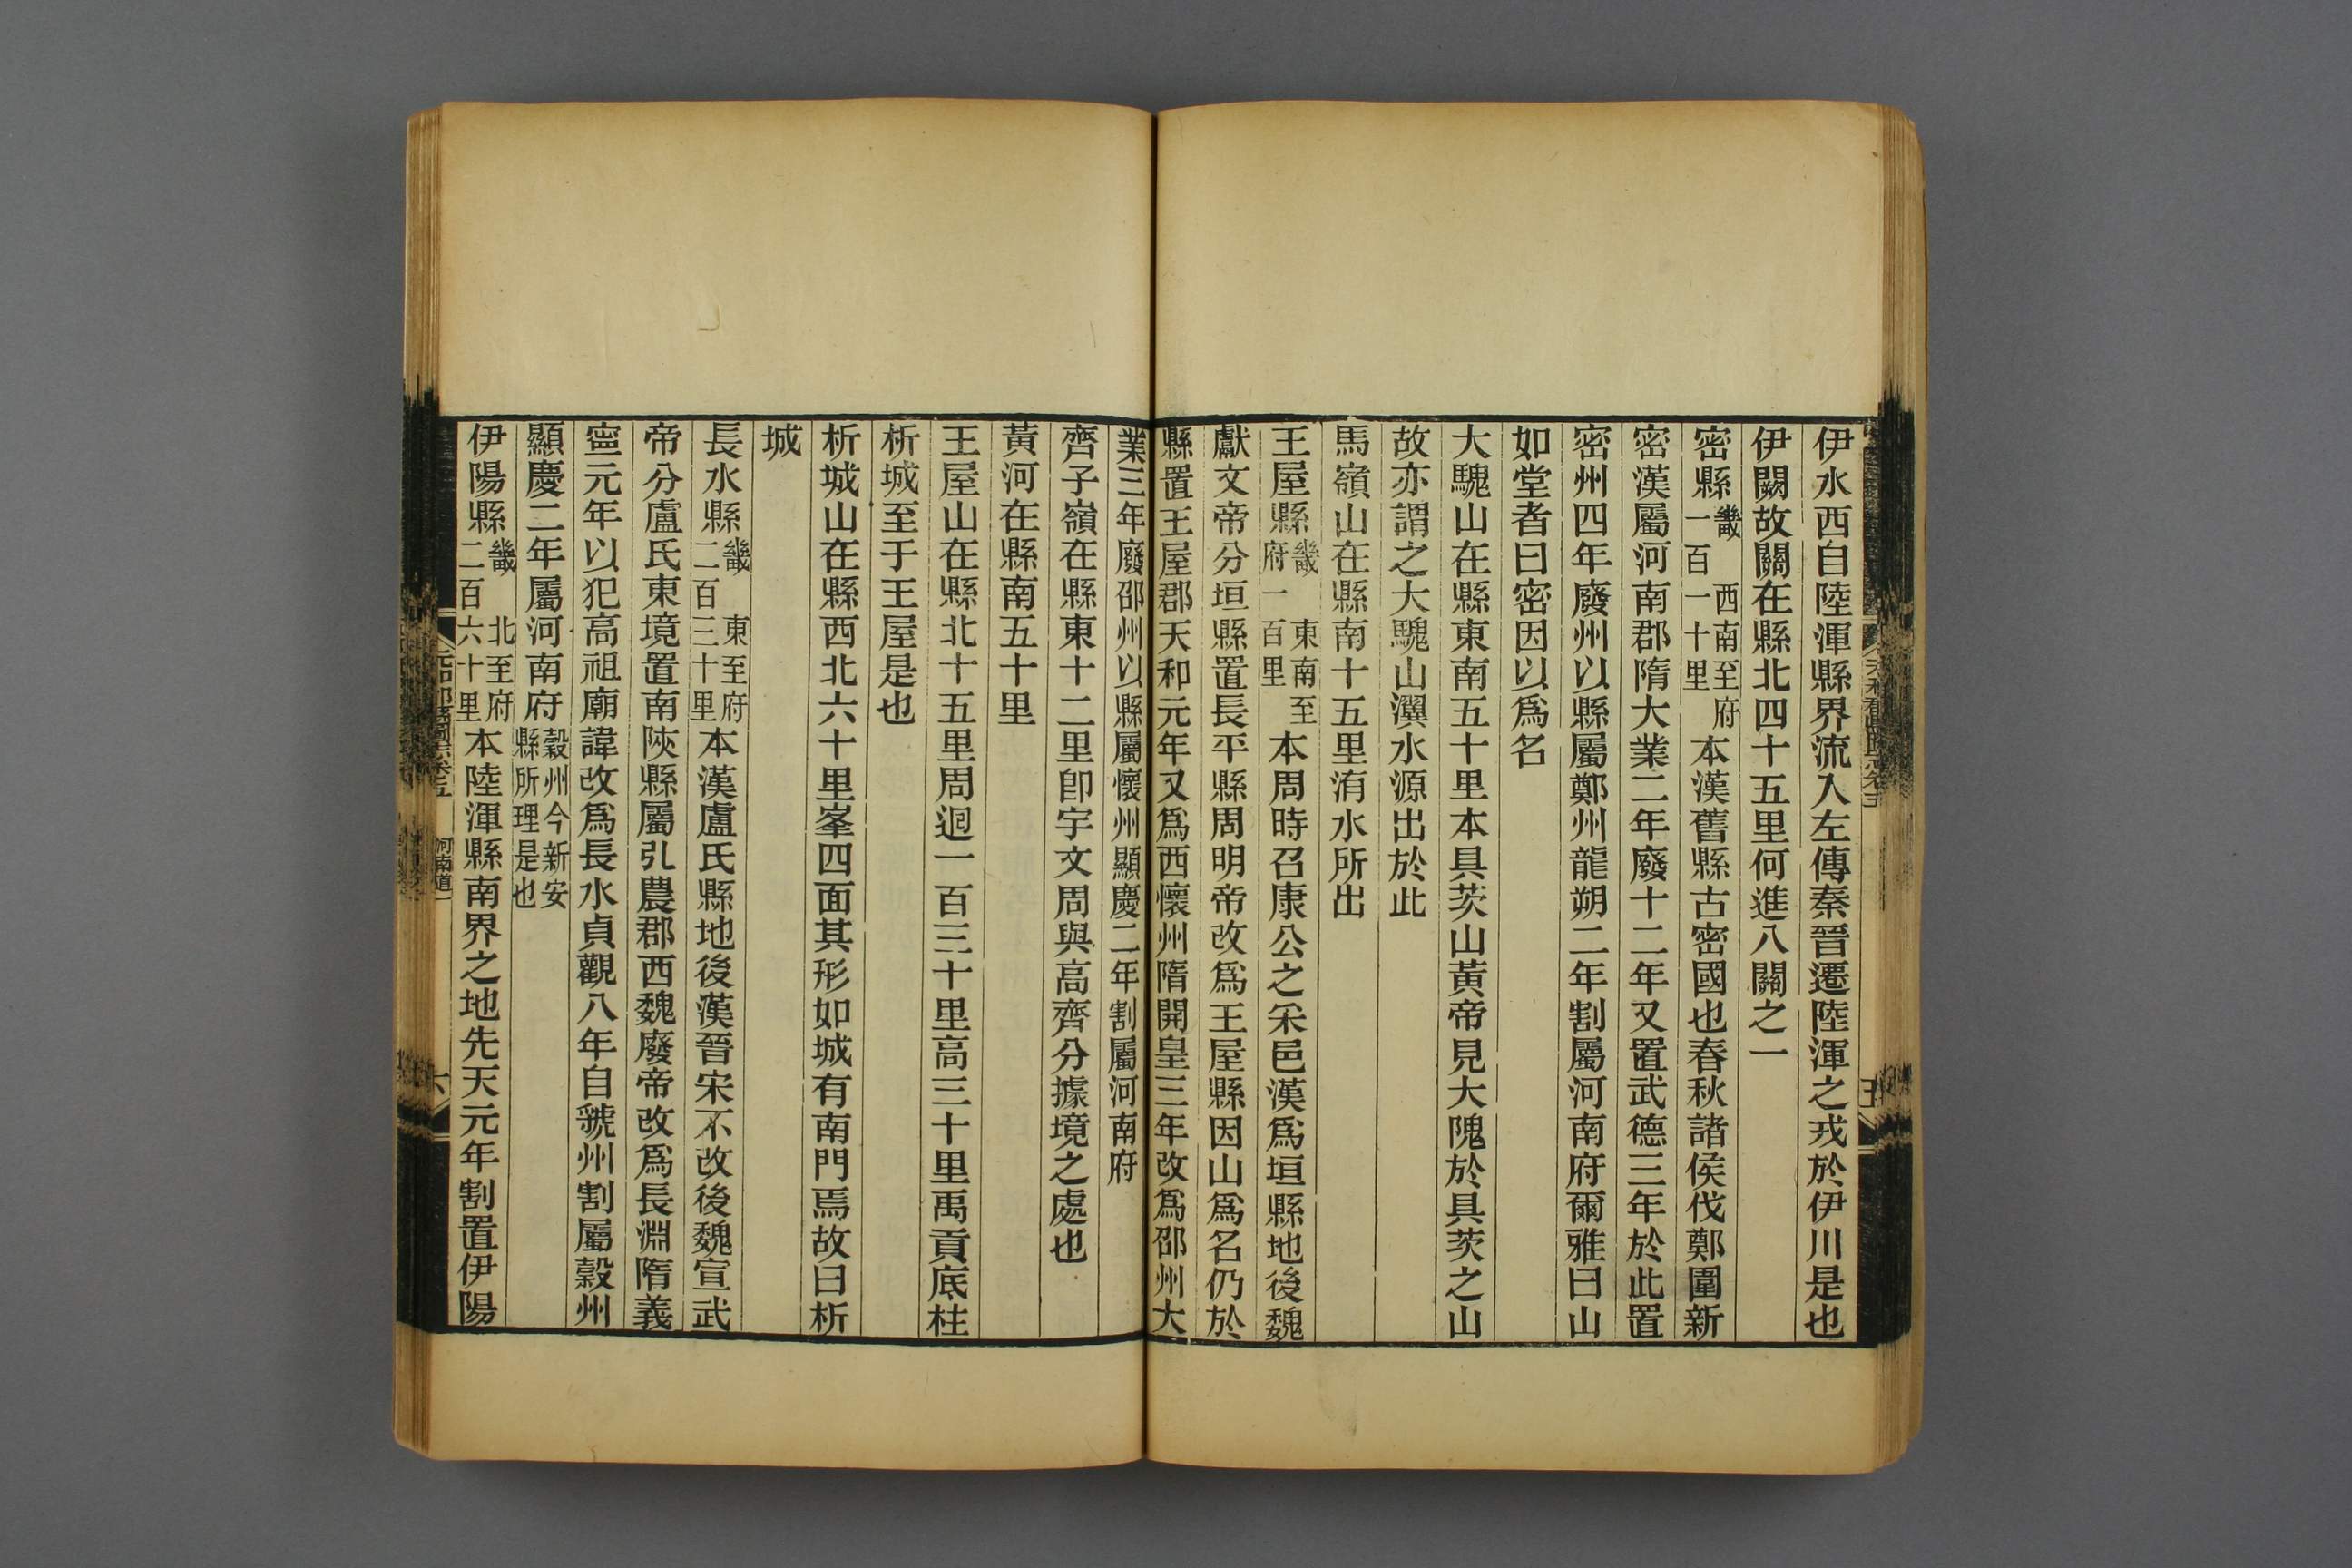 伊水西自陸渾縣界流入左傳秦晉遷陸渾之戎於伊川是也
伊闕故關在縣北四十五里何進八關之一
密縣畿 西南至府一百一十里本漢舊縣古密國也春秋諸侯伐鄭圍新
密漢屬河南郡隋大業二年廢十二年又置武德三年於此置
密州四年廢州以縣屬鄭州龍朔二年割屬河南府爾雅曰山
如堂者曰密因以爲名
大騩山在縣東南五十里本具茨山黃帝見大隗於具茨之山
故亦謂之大騩山瀷水源出於此
馬嶺山在縣南十五里洧水所出
王屋縣畿 東南至府一百里本周時召康公之采邑漢爲垣縣地後魏
獻文帝分垣縣置長平縣周明帝改爲王屋縣因山爲名仍於
縣置王屋郡天和元年又爲西懷州隋開皇三年改爲邵州大
業三年廢邵州以縣屬懷州顯慶二年割屬河南府
齊子嶺在縣東十二里卽宇文周與高齊分據境之處也
黃河在縣南五十里
王屋山在縣北十五里周迴一百三十里高三十里禹貢底柱
析城至于王屋是也
析城山在縣西北六十里峯四面其形如城有南門焉故曰析
城
長水縣畿 東至府二百三十里本漢盧氏縣地後漢晉宋不改後魏宣武
帝分盧氏東境置南陝縣屬弘農郡西魏廢帝改爲長淵隋義
寧元年以犯高祖廟諱改爲長水貞觀八年自虢州割屬穀州
顯慶二年屬河南府穀州今新安縣所理是也
伊陽縣畿 北至府二百六十里本陸渾縣南界之地先天元年割置伊陽
河南道一
六